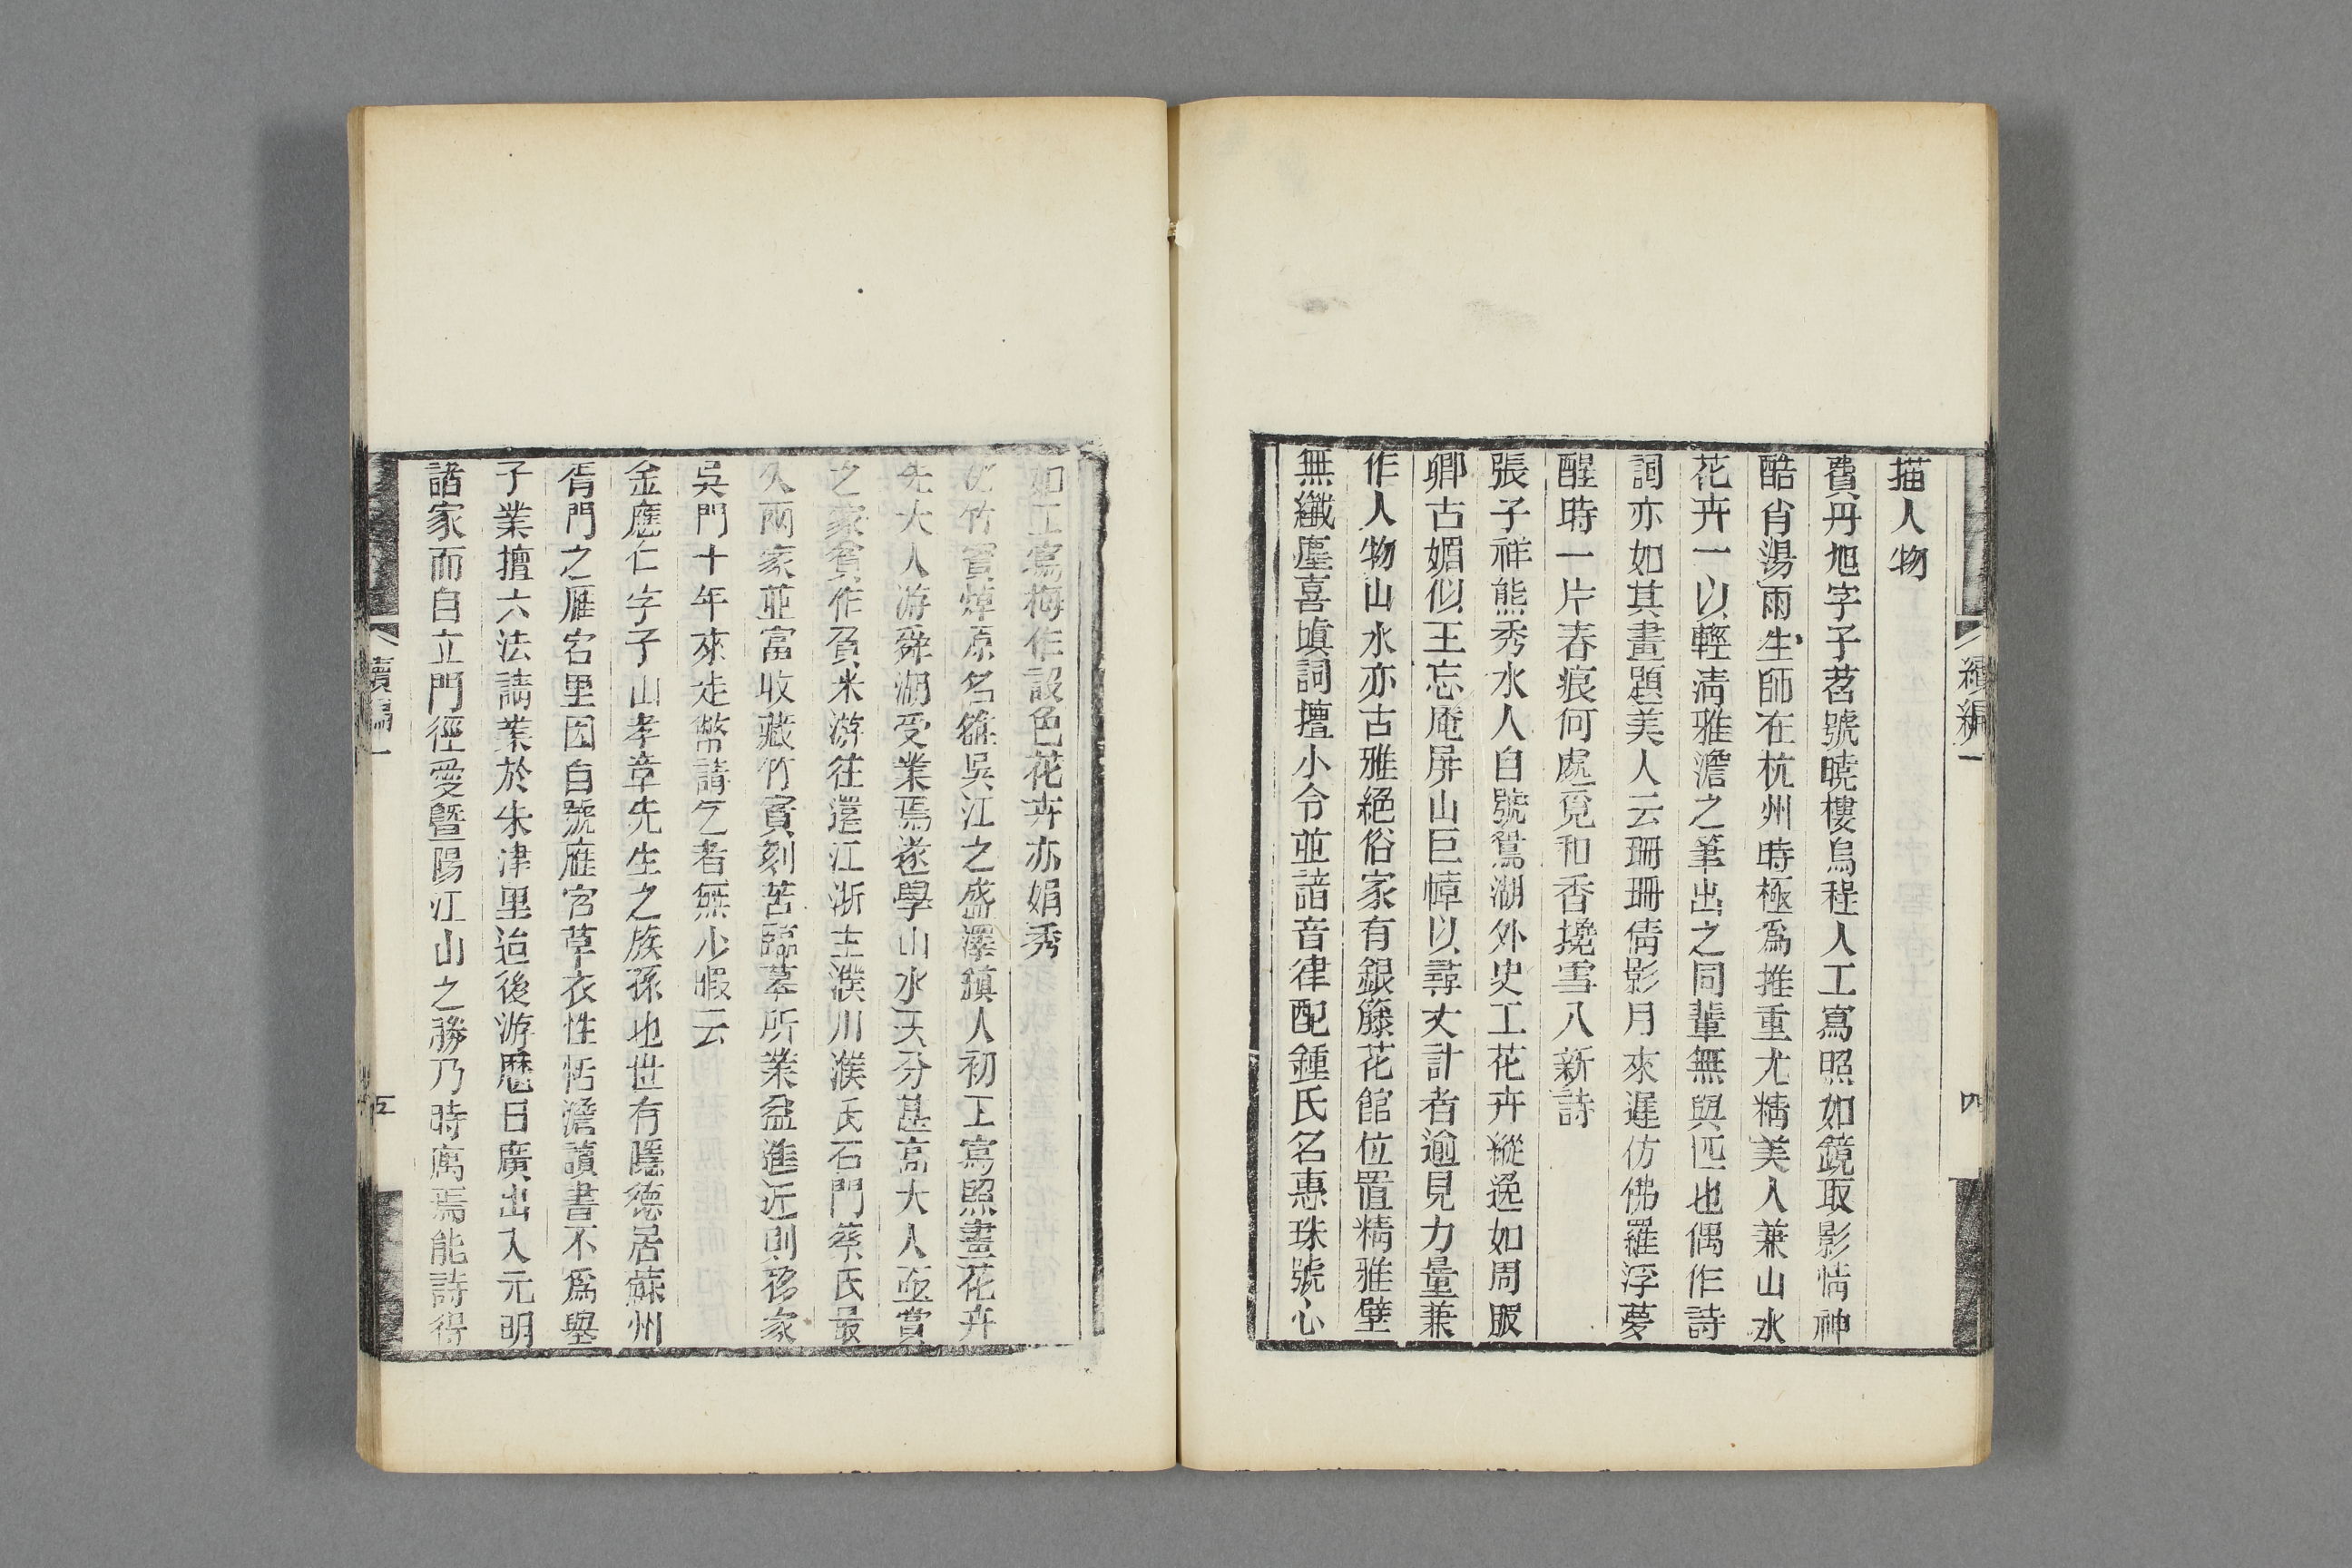 續編一
四
描人物
費丹旭字子苕號曉樓烏程人工寫照如鏡取影情神
酷肖湯雨生師在杭州時極爲推重尤精美人兼山水
花卉一以輕清雅澹之筆出之同輩無與匹也偶作詩
詞亦如其畫題美人云珊珊倩影月來遲仿佛羅浮夢
醒時一片春痕何處覓和香攙雪八新詩
張子祥熊秀水人自號鴛湖外史工花卉縱逸如周服
卿古媚似王忘庵屏山巨幛以尋丈計者逾見力量兼
作人物山水亦古雅絕俗家有銀籐花館位置精雅壁
無纖塵喜塡詞擅小令並諳音律配鍾氏名惠珠號心
如工寫梅作設色花卉亦娟秀
沈竹賓焯原名雒吳江之盛澤鎮人初工寫照畫花卉
先大人游舜湖受業焉遂學山水天分甚高大人亟賞
之家貧作負米游往還江浙主濮川濮氏石門蔡氏最
久兩家並富收藏竹賓刻苦臨摹所業益進近則移家
吳門十年來走幣請乞者無少暇云
金應仁字子山孝章先生之族孫也世有隱德居蘇州
胥門之雁宕里因自號雁宕草衣性恬澹讀書不爲舉
子業擅六法請業於朱津里迨後游歷日廣出入元明
諸家而自立門徑愛曁陽江山之勝乃時寓焉能詩得
續編一
五